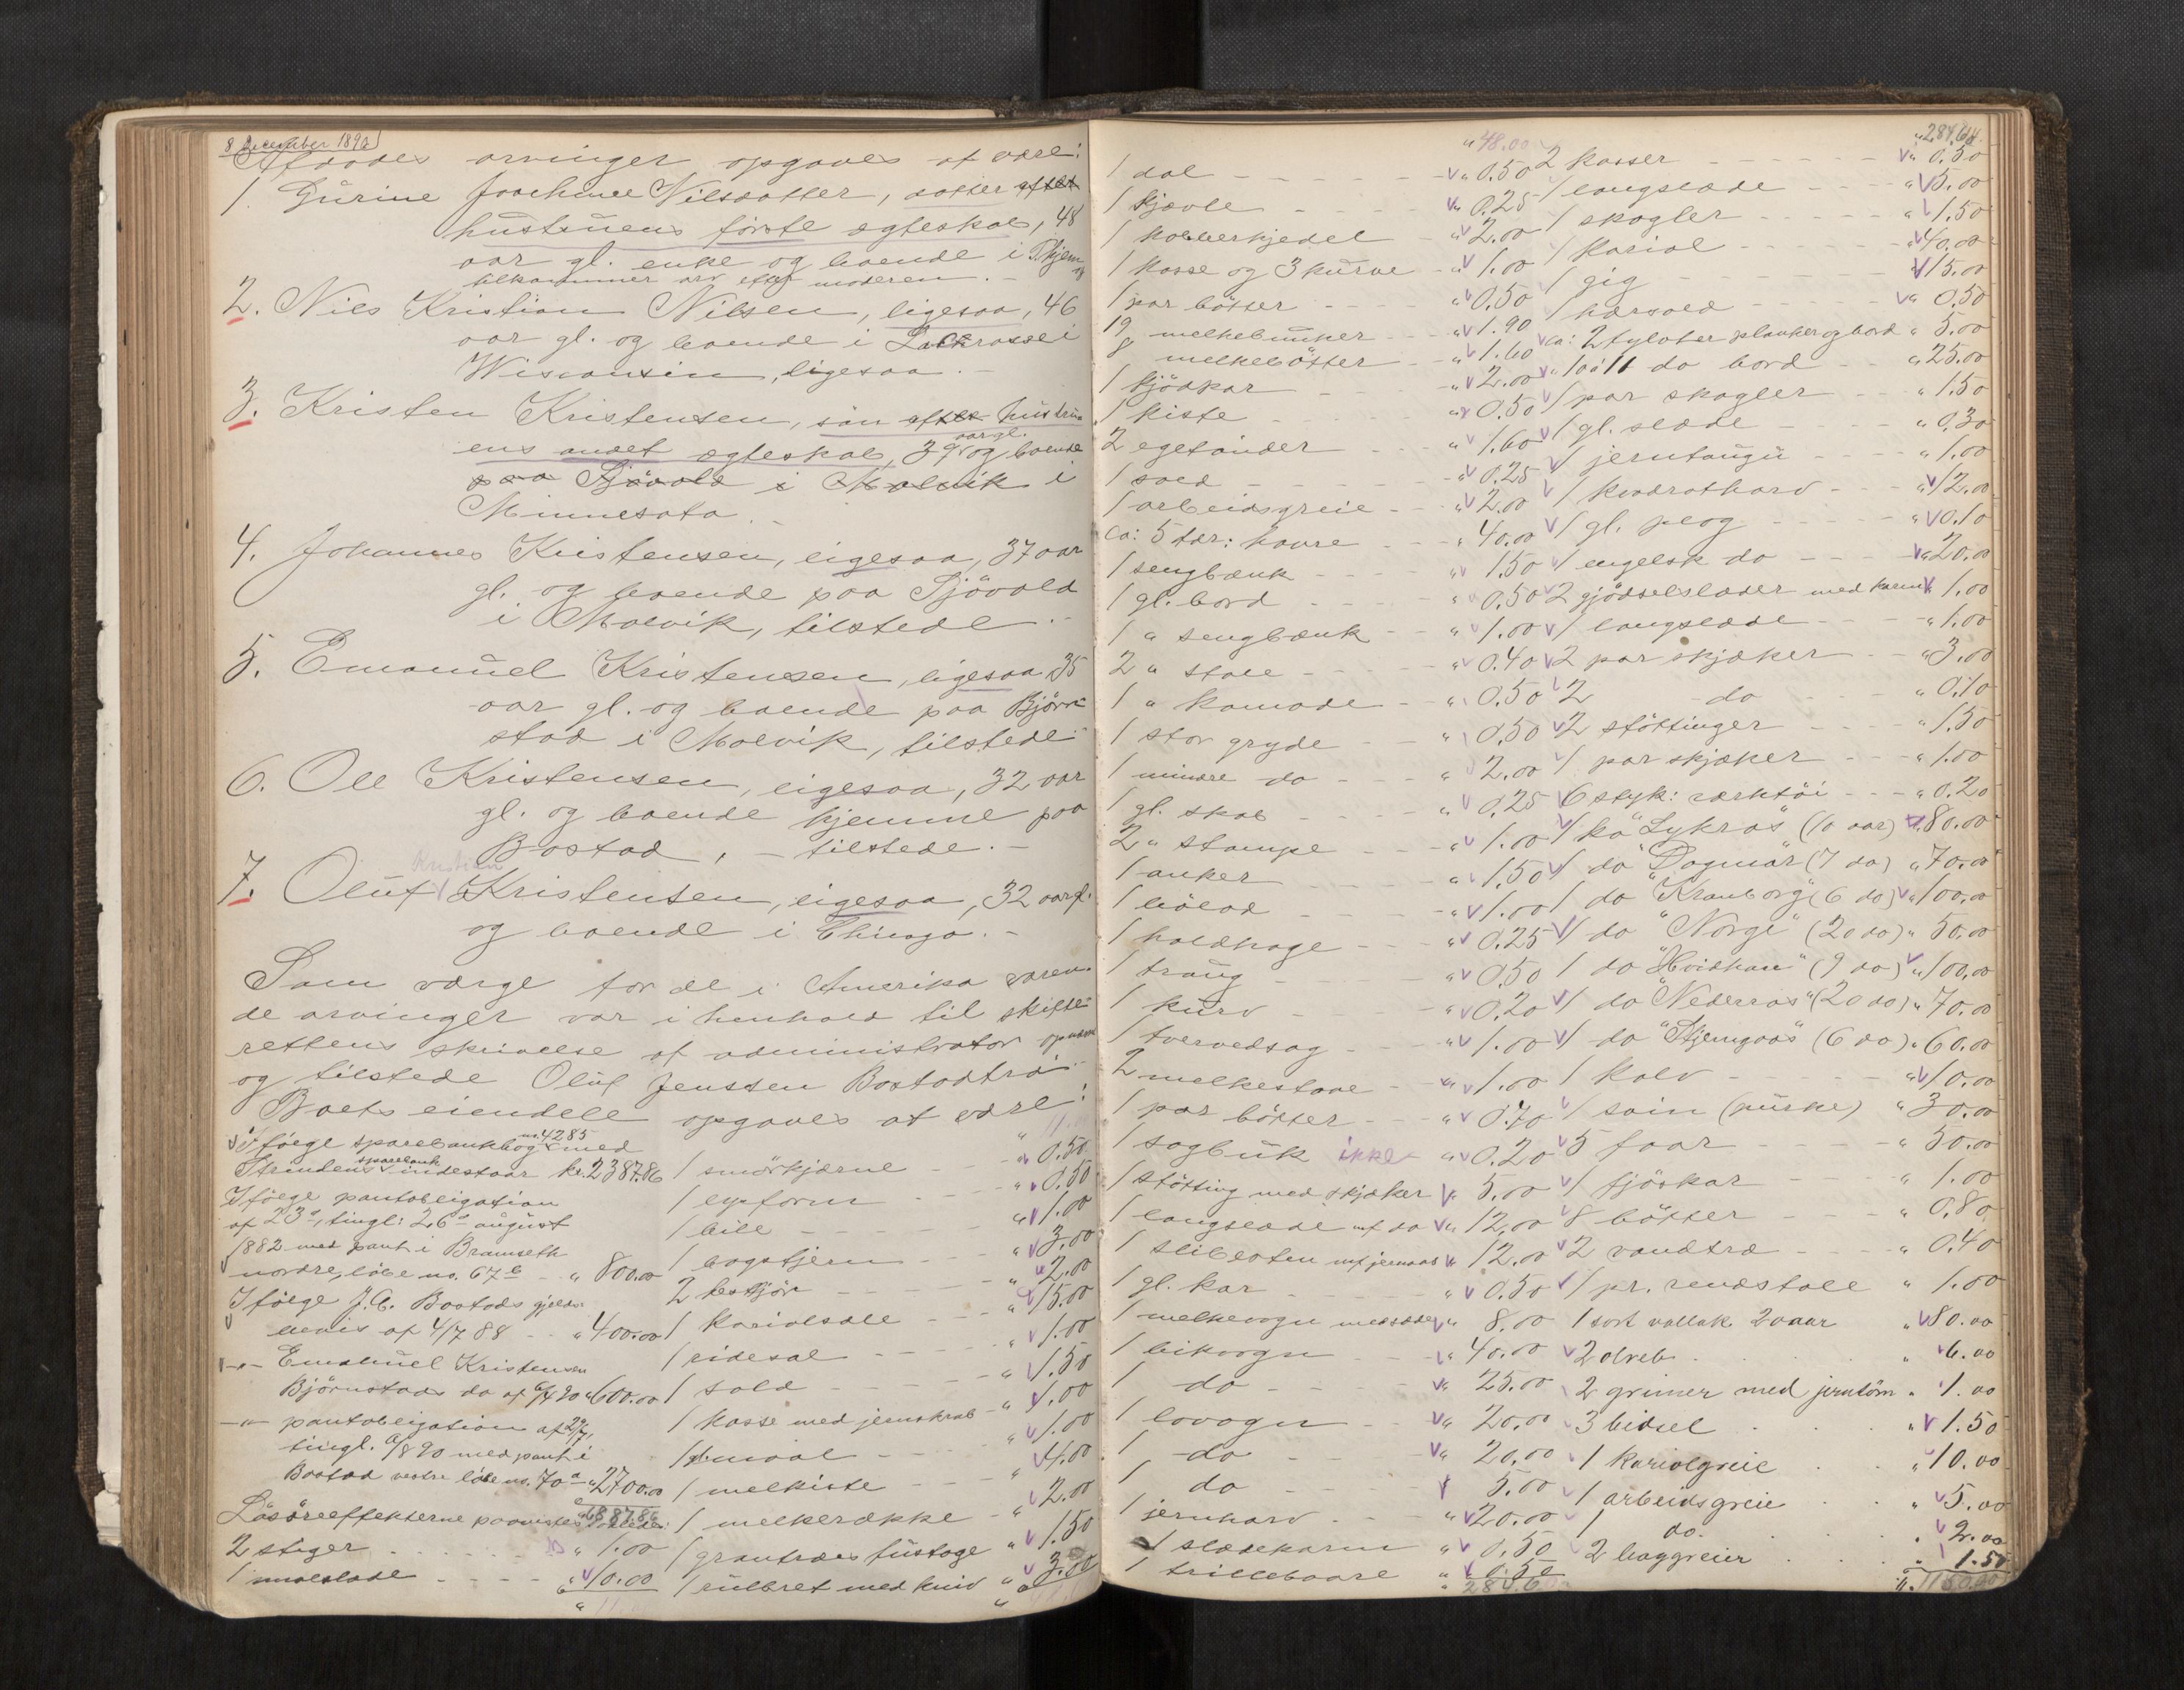 8 December 1892
Afdødes arvinger opgaves at være:
1. Gurine Joachime Nilsdatter, datter efter
hustruens förste ægteskab, 48
aar gl. enke og boende i Thjem
tilkommer arv efter moderen.
2. Nils Kristian Nilsen, ligesaa, 46
aar gl. og boende i Lacrosse i
Wisconsin, ligesaa.
3. Kristen Kristensen, sön efter hustru
ens andet ægteskab, 39 aar gl. og boende
paa Sjövold i Malvik i
Minnesota.
4. Johannes Kristensen, ligesaa, 37 aar
gl. og boende paa Sjövold
i Malvik, tilstede.
5. Emanuel Kristensen, ligesaa 35
aar gl. og boende paa Björn
stad i Malvik, tilstede
6. Ole Kristensen, ligesaa, 32 aar
gl. og boende hjemme paa
Bostad, - tilstede.
Kristian
7. Oluf Kristensen, ligesaa, 32 aar gl.
og boende i Chicago.
Som værge for de i Amerika væren-
de arvinger var i henhold til skifte-
rettens skrivelse af administrator opnævnt
og tilstede Oluf Jenssen Bostadtrö
Boets eiendele opgaves at være:
Ifölge sparebankbog no. 4285 med
Strindens sparebank indestaar kr. 2387.86
Ifölge pantobligation
af 23d, tingl: 26d august
1882 med pant i Bramseth
nordre, löbe no. 67b - " 800.00
Ifölge J. C. Bostads gjelds
bevis af 4/7 88 - - " 400.00
-"- Emanuel Kristensen
Björnstads do af 6/4 90 " 600.00
-"- pantobligation af 29/7,
tingl. 6/8 90 med pant i
Bostad vestre löbe no. 70a - " 2700.00
6887.86
Lösöreeffekterne paavistes saaledes:
2 stiger " 1.00
1 molslade - - - - " 10.00
" 11.00
" 11.00
1 smörkjærne - - " 0.50
1 lysform - - " 0.50
1 bile - - - " 1.00
1 bogstjern - - " 3.00
2 hestkjör - - - " 2.00
1 kariolsæle - - " 15.00
1 ridesal - - - " 1.00
1 sold - - - " 1.50
1 kasse med jernskrab - " 1.00
1 gl. moal - - " 1.00
1 melkiste - - " 4.00
1 melkerække - " 2.00
1 grautræes fustage " 1.50
1 eulbret med kniv " 3.00
" 48.00
1 dal - - - - " 0.50
1 kjævle - - - " 0.25
1 kobberkjedel - " 2.00
1 kasse og 3 kurve - " 1.00
1 par bötter - - - " 0.50
19 melkebunker - " 1.90
8 melkebötter - " 1.60
1 fjöskar - - " 2.00
1 kiste - - - " 0.50
2 egetönder - - " 1.60
1 sald - - - - " 0.25
1 arbeidsgreie - - " 2.00
ca: 5 tdr: havre - - " 40.00
1 sengbænk - - - " 1.50
1 gl. bord - - - " 0.50
1 " sengbænk - - " 1.00
2 " stole - - - " 0.40
1 " komode - - " 0.50
1 stor gryde - - " 0.50
1 mindre do - - - " 2.00
1 gl. skab - - - " 0.25
2 " stampe - - - " 1.00
1 anker - - - - " 1.50
1 liölad - - - - " 1.00
1 haldhage - - " 0.25
1 traug - - - " 0.50
1 kurv - - - " 0.20
1 tvervedsag - - " 1.00
2 melkestole - - " 1.00
1 par bötter - - " 0.70
1 sagbuk ikke " 0.20
1 stötting med skjæker " 5.00
1 langslæde mf do " 12.00
1 slibesten mf jernaas " 12.00
1 gl. kar - - - " 0.50
1 melkevogn med sæde " 8.00
1 likvogn - - - " 40.00
1 do - - - " 25.00
1 lovogn - - " 20.00
1 do - - - " 20.00
1 do - - - 5.00
1 jernharv - - - " 20.00
1 slædekarm " 0.50
1 trillebaare " 0.50
" 284.60
" 284.60
2 kasser - - - - " 0.50
1 langslæde - - - " 5.00
1 skagler - - - - " 1.50
1 kariol - - - - " 40.00
1 gig - - - - " 15.00
1 hærsold - - - " 0.50
ca: 2 tylvter planker og bord " 5.00
" 10 á 11 do bord - - " 25.00
1 par skagler - - " 1.50
1 gl. slæde - - - " 0.30
1 jerntaugu - - - " 1.00
1 kvadratharv - - " 12.00
1 gl. plog - - - " 0.10
1 engelsk do - - - " 20.00
2 gjödselslæder med karm " 1.00
1 langslæde - - - " 1.00
2 par skjæker - - " 3.00
2 do - - - " 0.10
2 stöttinger - - - " 1.50
1 par skjæker - - - " 1.00
6 styk: værktöi - - - " 0.20
1 ko "Lykros" (10 aar) " 80.00
1 do "Dagmar" (7 do) " 70.00
1 do "Kranborg" (6 do) " 100.00
1 do "Norge" (20 do) " 50.00
1 do "Hvidhau" (9 do) " 100.00
1 do "Nederros" (20 do) " 70.00
1 do "Stjerngaas" (6 do) " 60.00
1 kalv - - - - " 10.00
1 svin (purke) " 30.00
5 faar - - - - " 50.00
1 fjöskar - - - " 1.00
8 bötter - - - " 0.80
2 vandtræ - - - " 0.40
1 pr. rendstole " 1.00
1 sort vallak 20 aar " 80.00
2 dreb. . . . " 6.00
2 grimer med jerntöm " 1.00
3 bidsel . . . " 1.50
1 kariolgreie . . " 10.00
1 arbeidsgreie . . " 5.00
1 do. . . . " 2.00
2 baggreier . . . " 1.50
" 1150.00